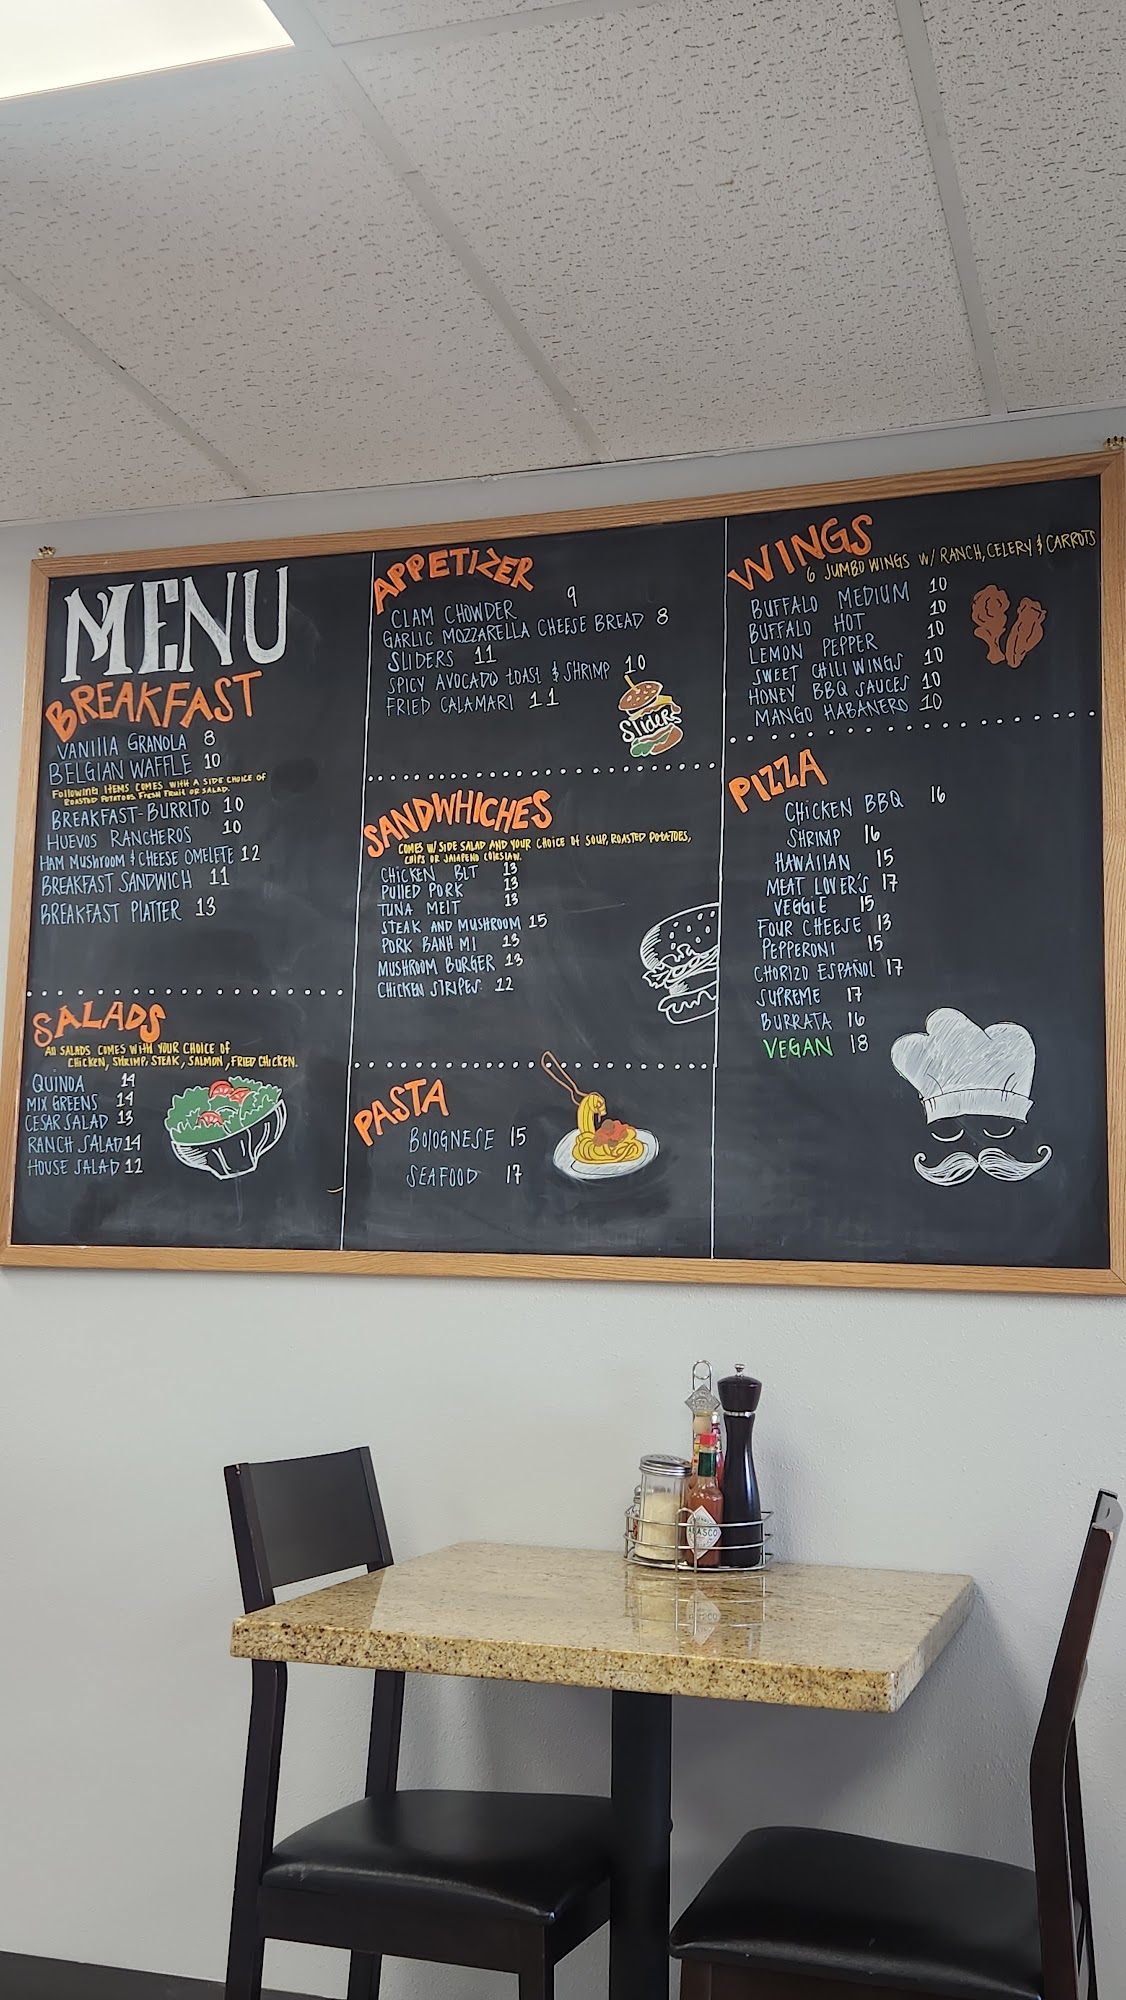 MENU
BREAKFAST
VANIlIA GRANOLA 8
BELGIAN WAFFLE 10
FOllOWING ITEMS COMES WITH A SIDE CHOICE OF
ROASTED POTATOES FRESH FRUIT OR SALAD.
BREAKFAST-BURRITO 10
HUEVOS RANCHEROS 10
HAM MUSHROOM & CHEESE OMELETE 12
BREAKFAST SANDWICH 11
BREAKFAST PLATTER 13
SALADS
All SALADS COMES WITH YOUR CHOICE OF
CHICKEN, SHRIMP, STEAK, SALMON, FRIED CHICKEN.
QUINOA 14
MIX GREENS 14
CESAR SALAD 13
RANCH SALAD 14
HOUSE SALAD 12
APPETIZER
CLAM CHOWDER 9
GARLIC MOZZARELLA CHEESE BREAD 8
SLIDERS 11
SPICY AVOCADO tOASt & SHRIMP 10
FRIED CALAMARI 11
Sliders
SANDWHICHES
COMES W/ SIDE SALAD AND YOUR CHOICE OF SOUP, ROASTED POTATOES,
CHIPS OR JALAPENO COLESLAW.
CHICKEN BLT 13
PUllED PORK 13
TUNA MELT 13
STEAK AND MUSHROOM 15
PORK BANH MI 13
MUSHROOM BURGER 13
CHICKEN STRIPES 12
PASTA
BOlOGNESE 15
SEAFOOD 17
WINGS
6 JUMBO WINGS W/ RANCH, CELERY & CARROTS
BUFFALO MEDIUM 10
BUFFALO HOT 10
LEMON PEPPER 10
SWEET CHILI WINGS 10
HONEY BBQ SAUCES 10
MANGO HABANERO 10
PIZZA
CHICKEN BBQ 16
SHRIMP 16
HAWAIIAN 15
MEAT LOVER'S 17
VEGGIE 15
FOUR CHEESE 13
PEPPERONI 15
CHORIZO ESPAÑOL 17
SUPREME 17
BURRATA 16
VEGAN 18